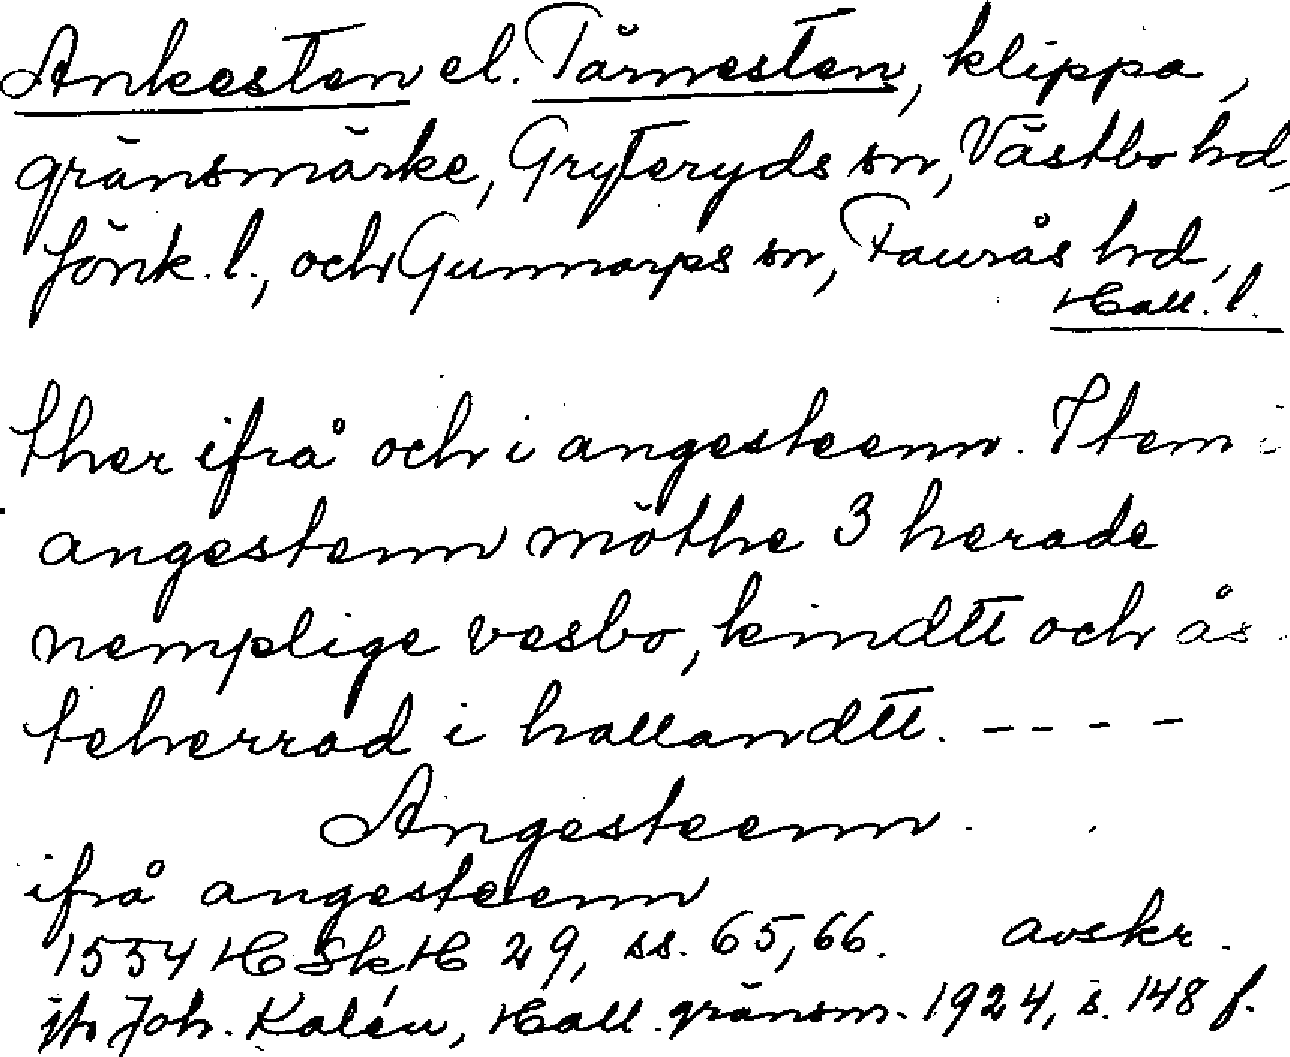 Ankesten el. Tårnesten, klippa,
gränsmärke, Gryteryds sn, Västbo hd,
Jönk. l., och Gunnarps sn, Faurås hd,
Hall. l.
ther ifrå och i angesteenn. Item i
angestenn möthe 3 herade
nemplige vesbo, kindtt och ås
teherrad i hallandtt. - - - -
Angesteenn
ifrå angesteenn
1554 HSk, H 29, ss. 65, 66. avskr.
jfr Joh. Kalén, Hall. gränsm. 1924, s. 148 f.